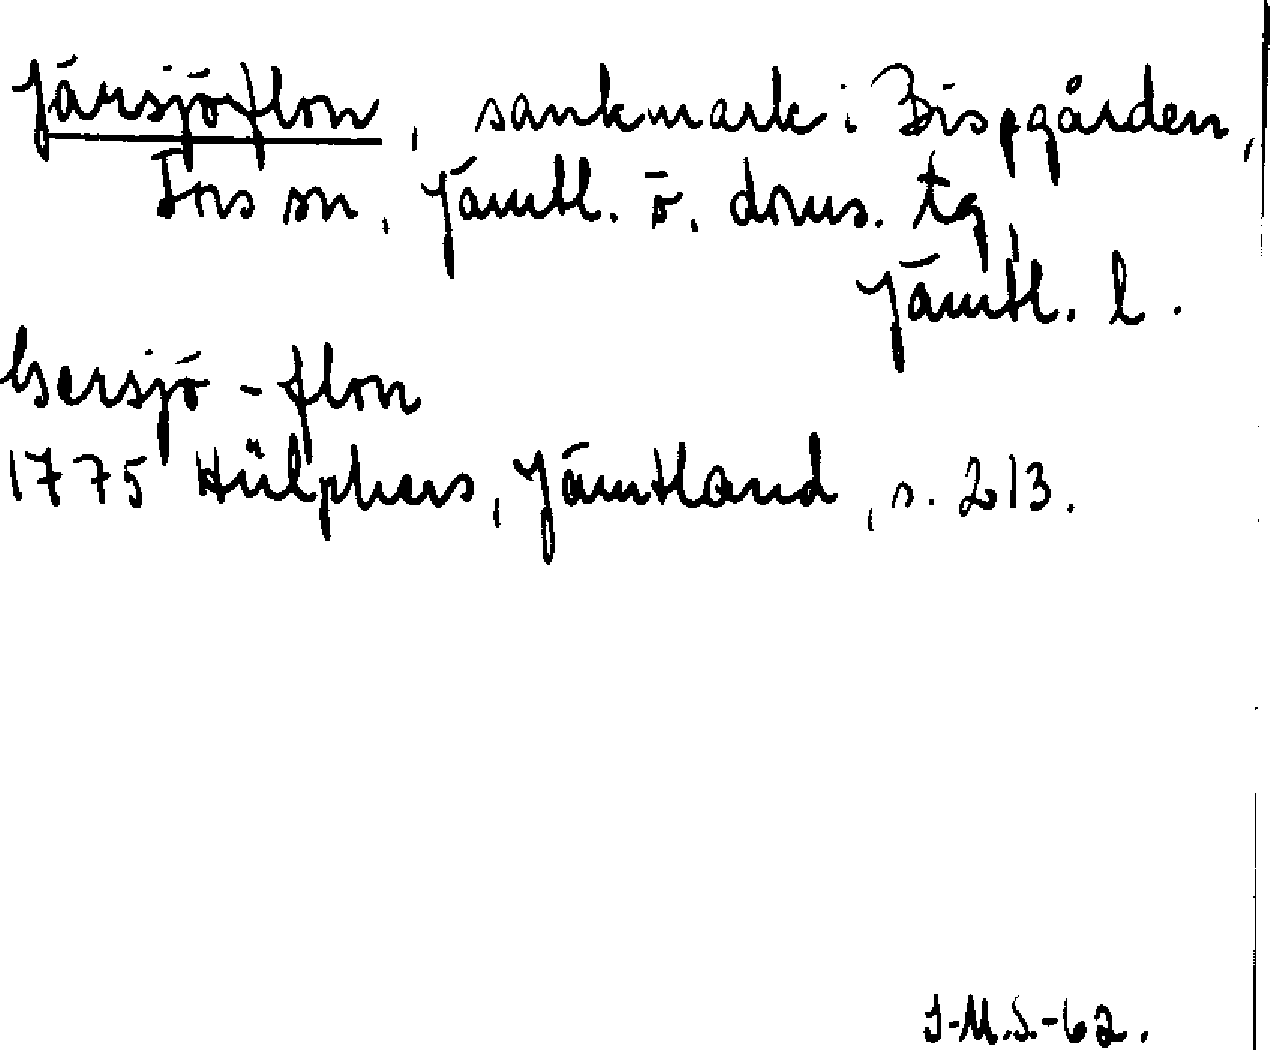 Järsjöflon, sankmark i Bispgården,
Fors sn, Jämtl. ö. doms. tg,
Jämtl. l.
Gersjö-flon
1775 Hülphers, Jämtland, s. 213.
I-M.S.-62.